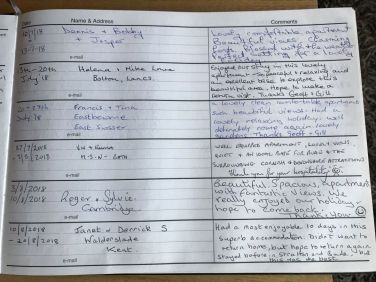 Date Name & Address Comments
10/7/18 Dennis & Bobby Lovely comfortable apartment
+ Jasper Beautiful + charming
13-7-18 with the
e-mail
13th-20th Helena & Mike Enjoyed our stay in this lovely
July '18 Bolton, Lancs. apartment - so peaceful & relaxing and
an excellent base to explore this
e-mail beautiful area. Hope to make a
visit. Thanks Geoff & Gill.
Francis + Tina a lovely clean comfortable apartment
July '18 Eastbourne such beautiful views. Had a
East Sussex lovely relaxing holiday. will
definately come again lovely
e-mail Thanks Geoff + Gill
27/7/2018 WELL EQUIPPED APARTMENT, LOVELY VIEWS,
QUIET & AN IDEAL BASE FOR
SURROUNDING CORNISH & DEVONSHIRE ATTRACTIONS
e-mail Thank you for your hospitality
3/8/2018 Beautiful, Spacious, Apartment
10/8/2018 Roger & Sylvie. with fantastic views. We
Cambridge really enjoyed our holiday -
hope to come back.
e-mail Thank you
10/8/2018 Janet & Derrick S Had a most enjoyable 10 days in this
- 20/8/2018 Walderslade Superb accommodation. Didn't want to
Kent. return home, but hope to return again
e-mail Stayed before in Stratton and Bude, but
this was the best.